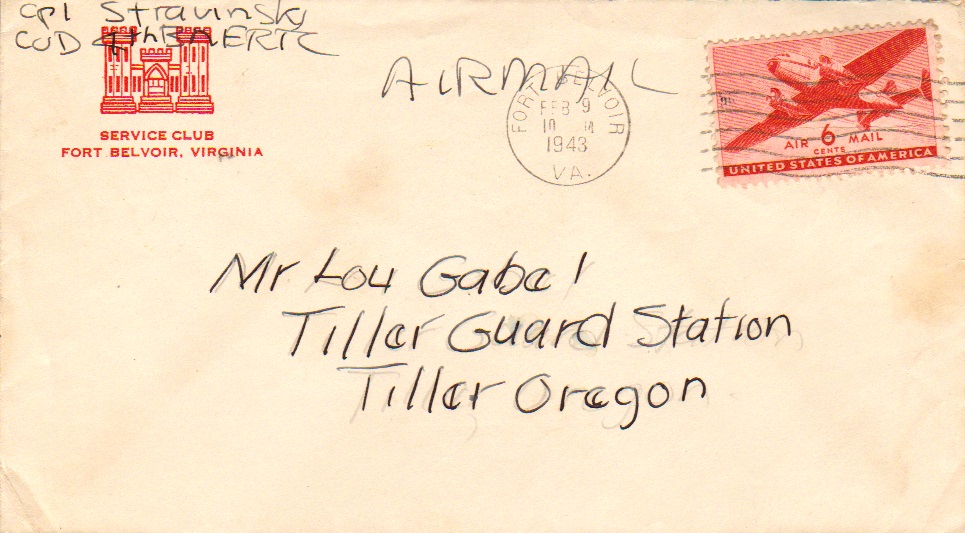 Cpl Stravinsky
Co D 4th Bn ERTC
SERVICE CLUB
FORT BELVOIR, VIRGINIA
AIRMAIL
FORT BELVOIR
FEB 9
10 M
1943
VA.
AIR 6 MAIL
CENTS
UNITED STATES OF AMERICA
Mr Lou Gabel
Tiller Guard Station
Tiller Oregon